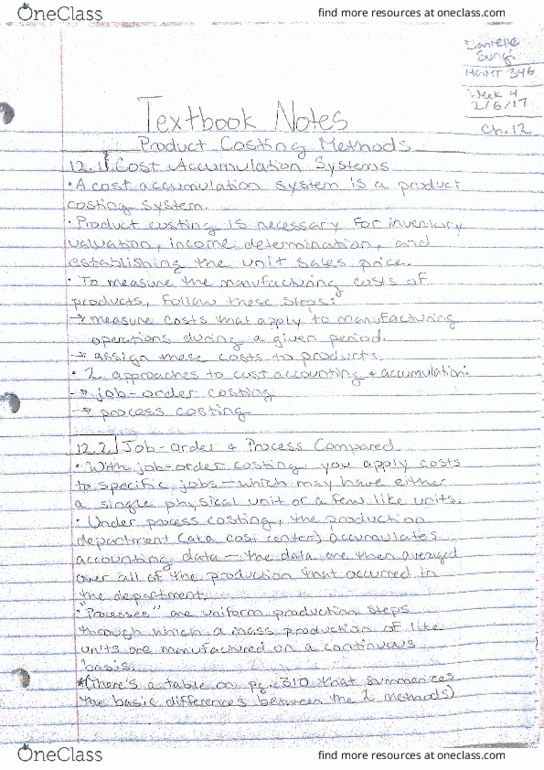 OneClass
find more resources at oneclass.com
Danielle
Sung
MGMT 346
Week 4
2/6/17
Ch. 12
Textbook Notes
Product Costing Methods
12.1 Cost Accumulation Systems
• A cost accumulation system is a product
costing system.
• Product costing is necessary for inventory
valuation, income determination, and
establishing the unit sales price.
• To measure the manufacturing costs of
products, follow these steps:
→ measure costs that apply to manufacturing
operations during a given period.
→ assign these costs to products.
• 2 approaches to cost accounting + accumulation:
→ job-order costing
→ process costing
12.2 Job-Order + Process Compared
• With job-order costing you apply costs
to specific jobs—which may have either
a single physical unit or a few like units.
• Under process costing, the production
department (aka cost center) accumulates
accounting data—the data are then averaged
over all of the production that occurred in
the department.
• "Processes" are uniform production steps
through which a mass production of like
units are manufactured on a continuous
basis.
*(There's a table on pg. 310 that summarizes
the basic differences between the 2 methods)
OneClass
find more resources at oneclass.com